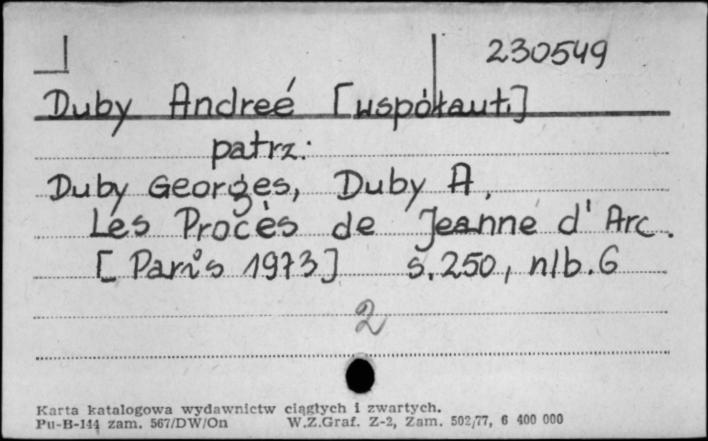 230549
Duby Andreé [współaut.]
patrz:
Duby Georges, Duby A.
Les Procès de Jeanne d'Arc.
[Paris 1973] s. 250, nlb. 6
2
Karta katalogowa wydawnictw ciągłych i zwartych.
Pu-B-144 zam. 567/DW/On W.Z.Graf. Z-2, Zam. 502/77, 6 400 000